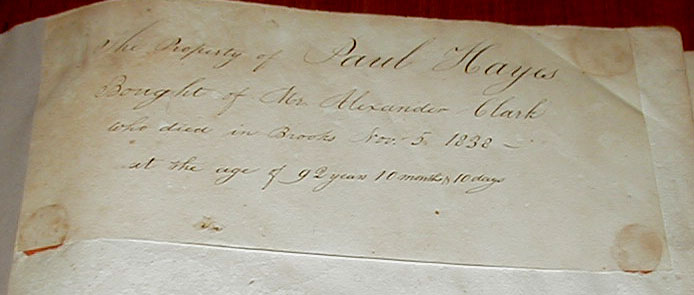 The Property of Paul Hayes
Bought of Mr. Alexander Clark
who died in Brooks Nov. 5. 1838 —
at the age of 92 years 10 months & 10 days